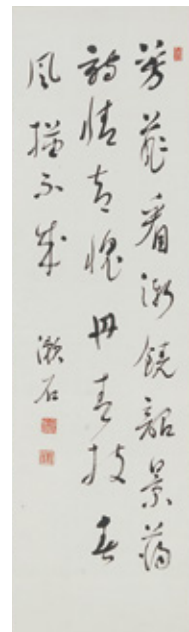 芳菲看漸饒韶景蕩
詩情却愧丹青技春
風描不成 漱石